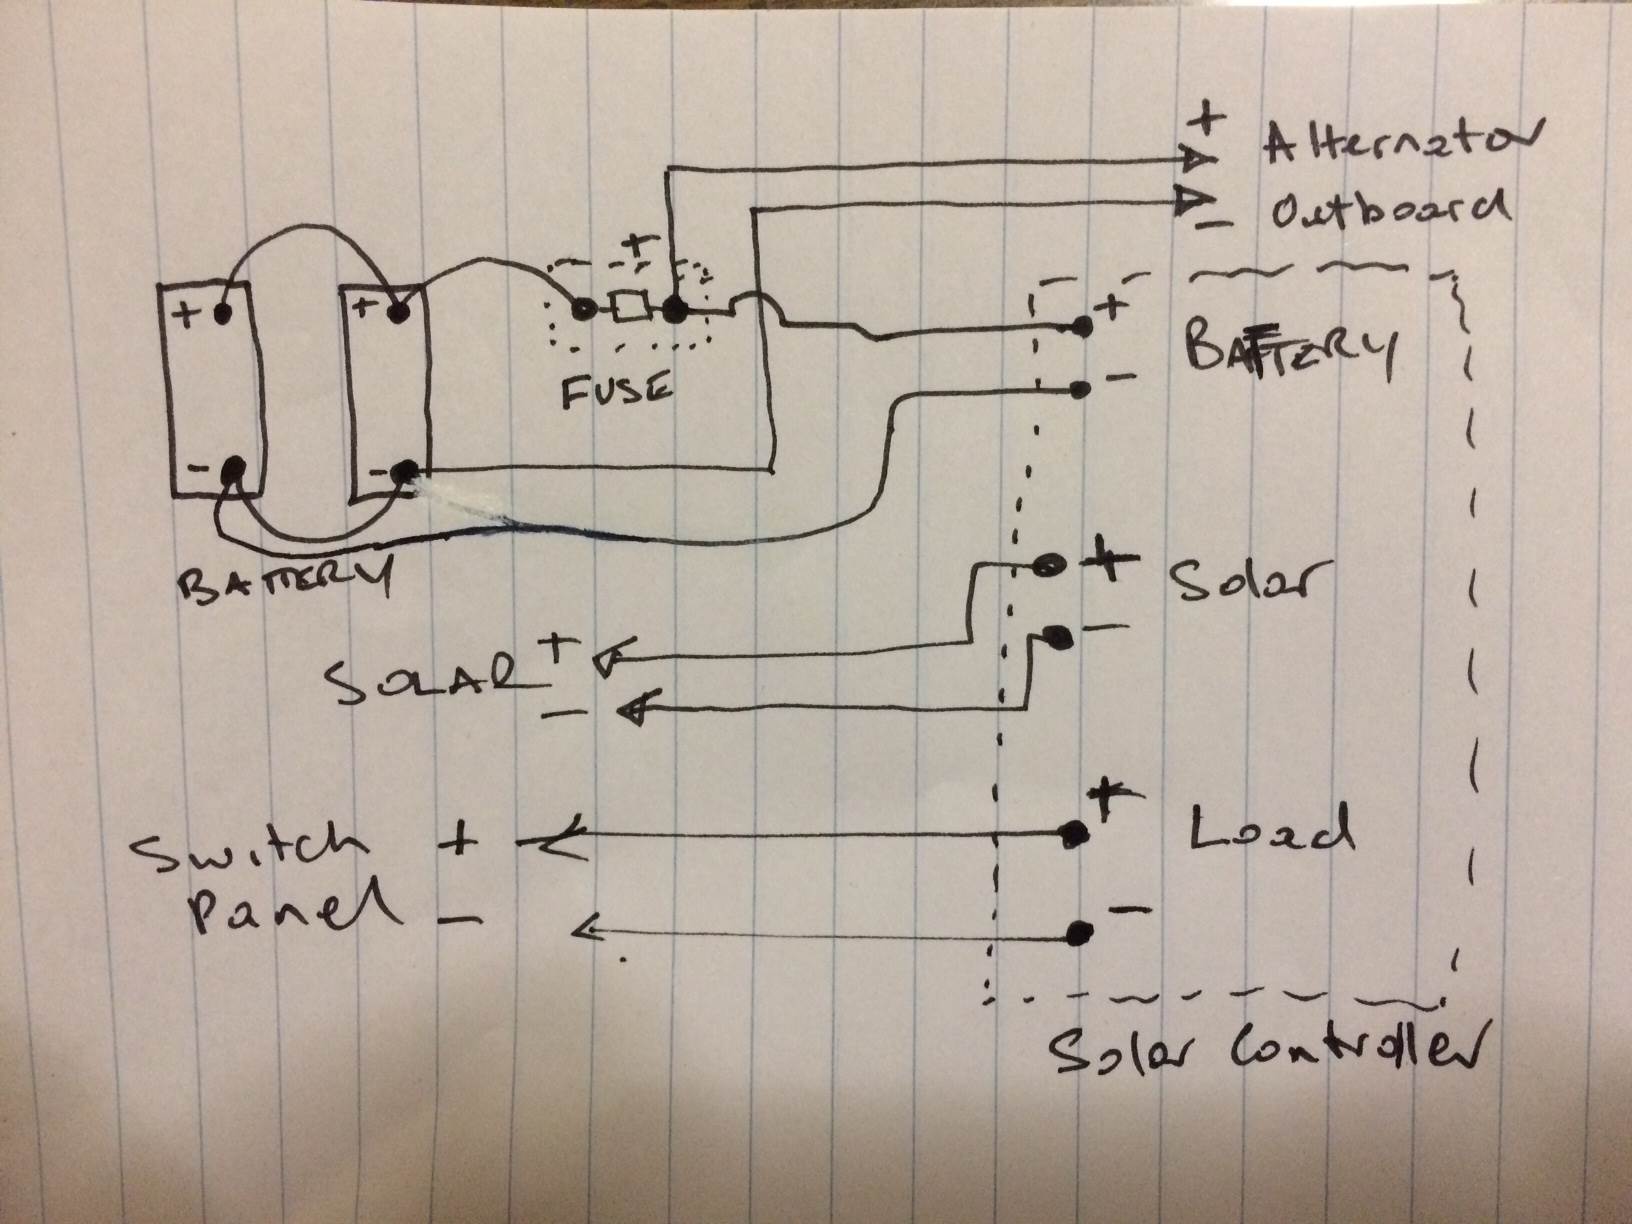 + Alternator
- Outboard
+
+ +
+
BATTERY
FUSE
-
- -
BATTERY
+ Solar
-
SOLAR +
-
+
Load
Switch +
Panel -
-
Solar Controller